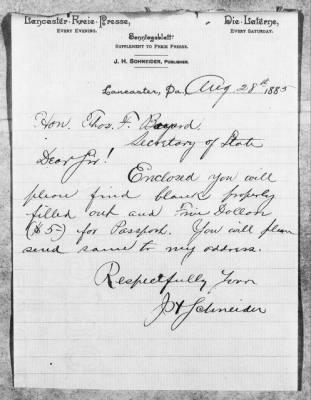 Lancaster Freie Presse,
Every Evening.
Die Laterne,
Every Saturday.
Sonntagsblatt
Supplement to Freie Presse.
J. H. Schneider, Publisher.
Lancaster, Pa. Aug 28th 1885
Hon. Thos. F. Bayard.
Secretary of State
Dear Sir!
Enclosed you will
please find blank properly
filled out and Five Dollars
($5-) for Passport. You will please
send same to my address.
Respectfully Your
J H Schneider